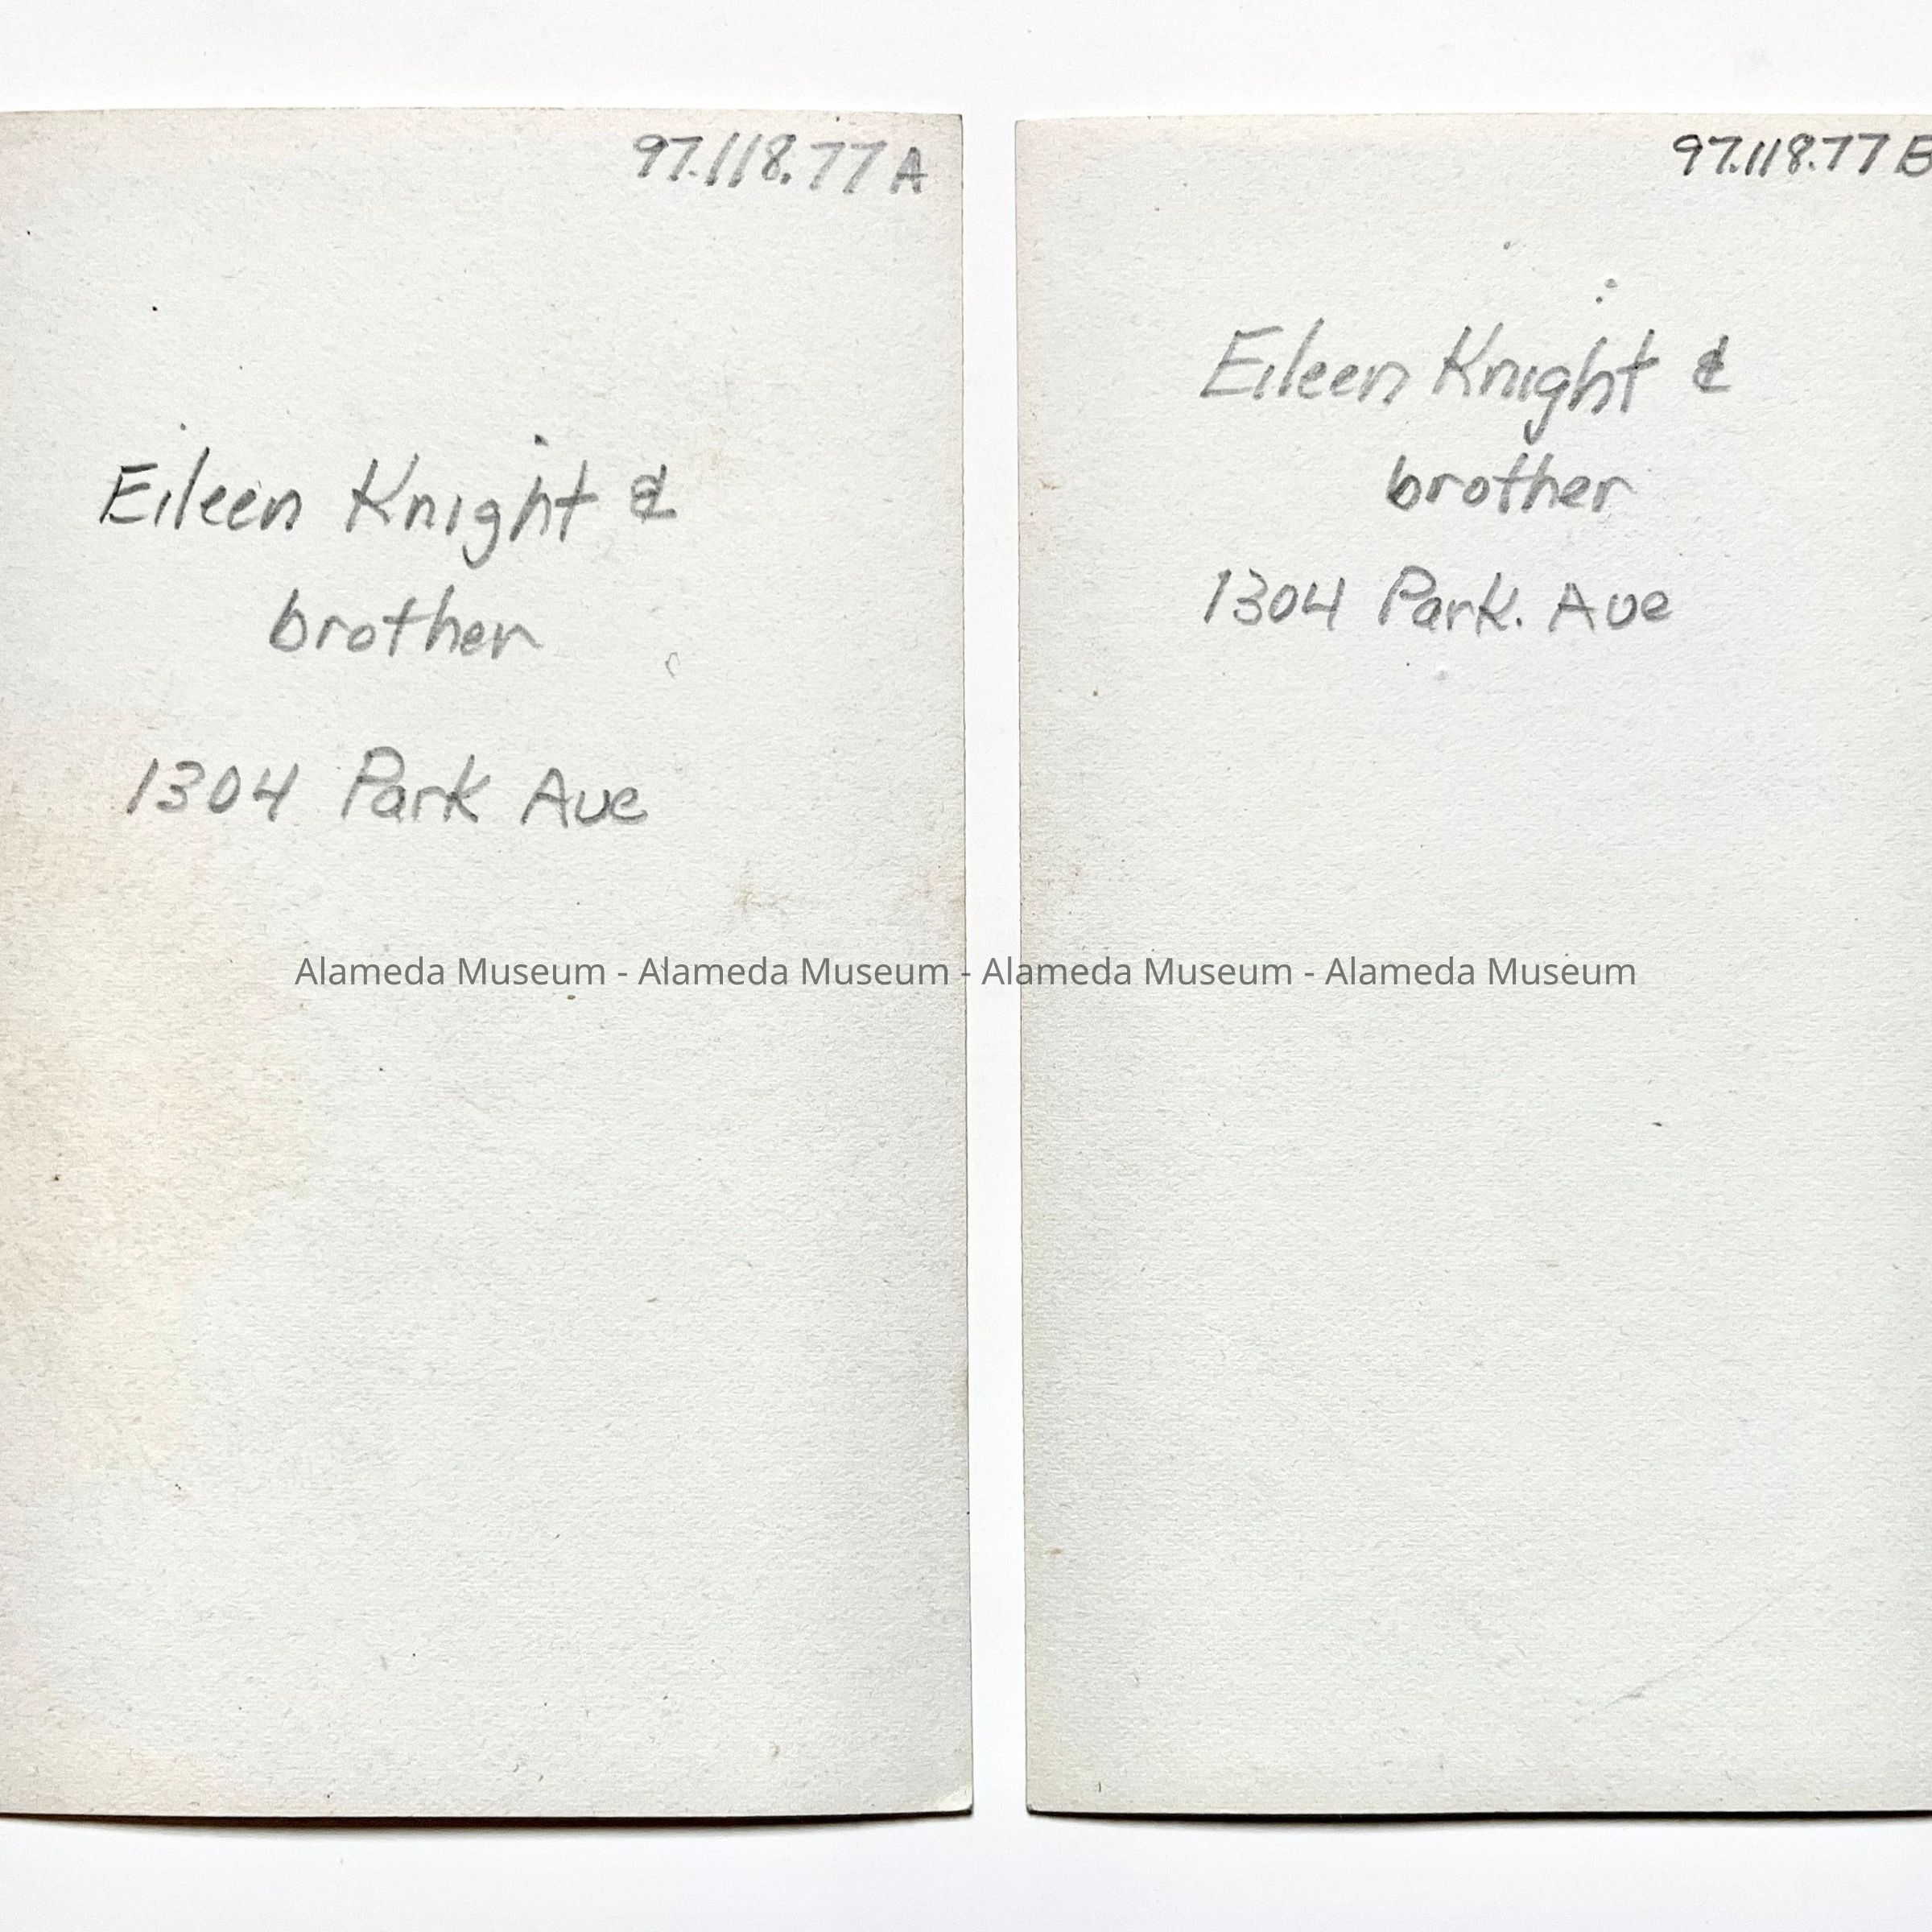 97.118.77 A
Eileen Knight &
brother
1304 Park Ave
97.118.77 B
Eileen Knight &
brother
1304 Park. Ave
Alameda Museum - Alameda Museum - Alameda Museum - Alameda Museum